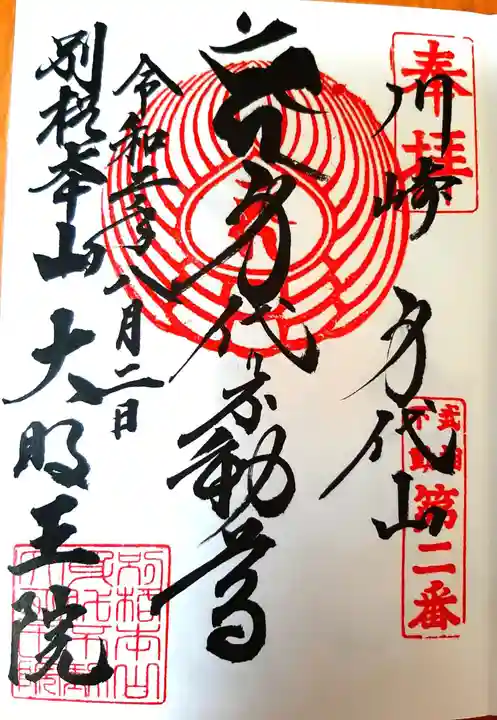 奉拝
川崎 身代山
武相不動 第二番
身代不動尊
令和二年八月二日
別格本山 大明王院
別格本山